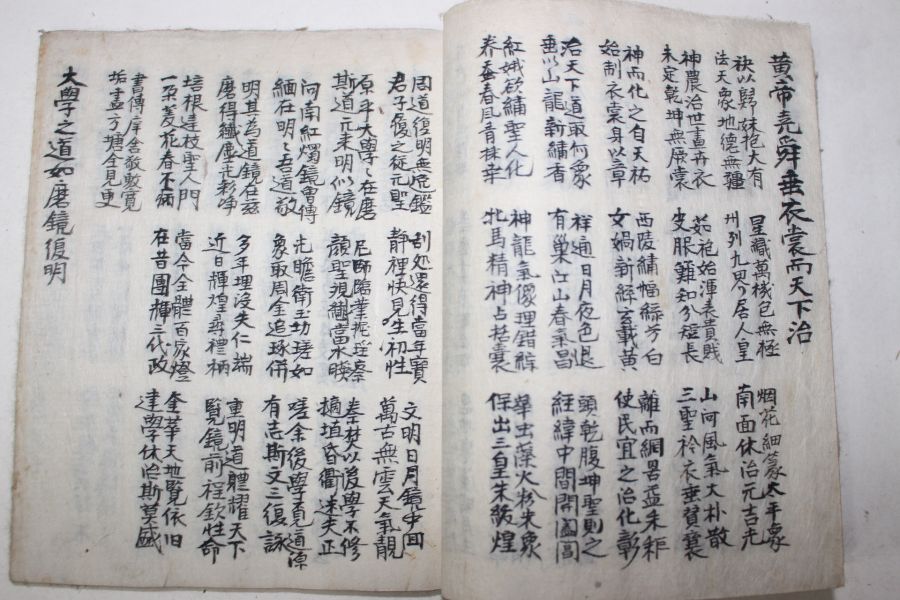 黃帝堯舜垂衣裳而天下治
袂以歸妹抱大有
法天象地德無疆
星職萬機包無極
州列九界今居人皇
烟花細篆太平象
南面休治元吉光
神農治世畫卉衣
未定乾坤無展裳
茹袍始渾表貴賤
史服難知分短長
山河風氣大朴散
三聖衿衣垂賛襄
神而化之自天祐
始制衣裳身以章
西陵繡幅綠芳白
女媧新綵玄載黃
離而網罟益耒耜
使民宜之治化彰
治天下道取何象
垂以山龍新繡香
祥通日月夜色退
有巢江山春氣昌
頭乾腹坤聖則之
經緯中間開闔
紅娥欲繡聖人化
養蚕春風青採
神龍氣像理錯綜
牝馬精神占括囊
華虫藻火粉米象
保出三皇未紱煌
周道復明無疵鑑
君子復之從元聖
刮処還得當年寶
靜裡快見生初性
文明日月鏡中面
萬古無雲天氣靚
原乎大學〻在磨
斯道元來明似鏡
尼師臨業
顏聖視當水暎
秦焚以後學不修
擿埴昏衢迷失正
河南紅燭鏡曾傳
緬在明〻吾道敬
先瞻衛玉功磋如
象取周金追琢併
嗟余後學覓道源
有志斯文三復詠
明其為道鏡在玆
磨得纖塵光彩淨
多年埋沒失仁端
近日輝煌尋禮柄
重明一道體耀天下
覽鏡前程欽性命
培根達枝聖人門
一朶菱花春不病
當今全體百家燈
在昔團輝三代政
金華天地覽依旧
建學休治斯莫盛
書傳庠舍敬敷寬
垢盡方塘全見更
大學之道如磨鏡復明